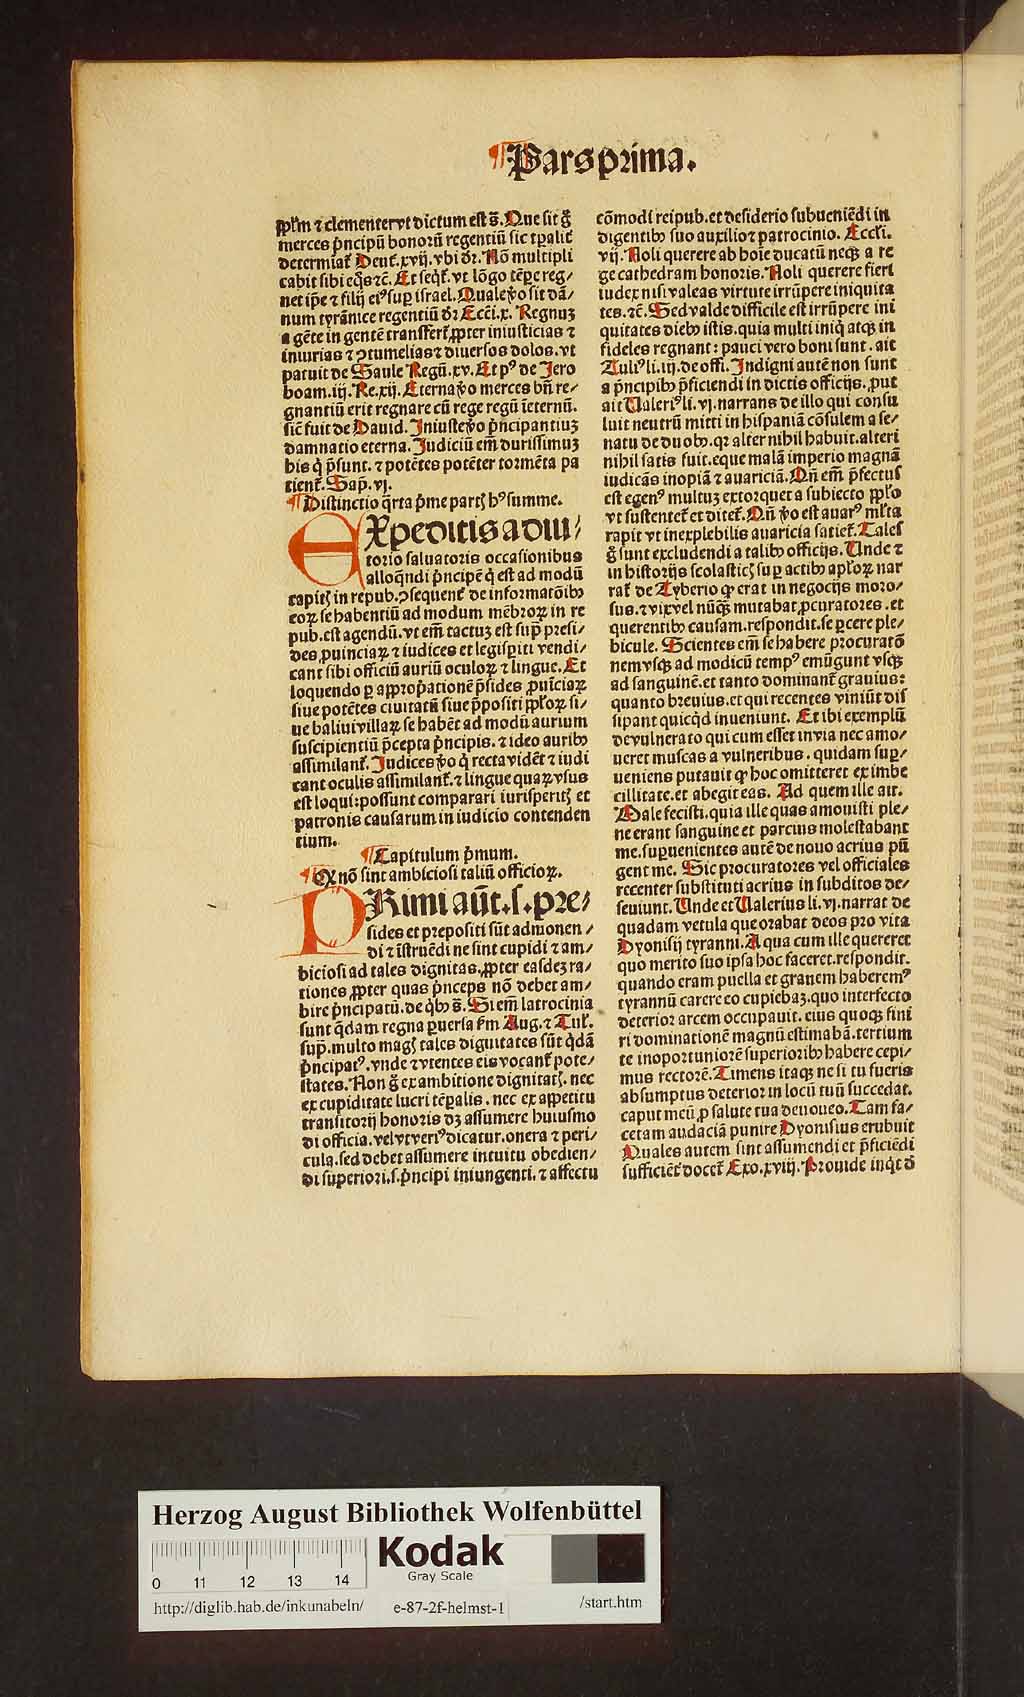 ¶Pars prima.
ppl̄m ⁊ clementer vt dictum est s̄. Que sit g̊
merces p̄ncipū bonorū regentiū sic tꝑalit̄
determiat̄ Deut̄.xvij.vbi dr̄. Nō multipli
cabit sibi eq̄s ⁊c̄. Et seq̄t̄. vt lōgo tēꝑe reg⸗
net ip̄e ⁊ filij eiꝰ suꝑ israel. Quale v̊o sit dā⸗
num tyrānice regentiū dr̄ Ecci.x. Regnuꝫ
a gēte in gentē transfert̄ ꝓpter iniusticias ⁊
iniurias ⁊ ꝯtumelias ⁊ diuersos dolos. vt
patuit de Saule Regū.xv. Et pꝰ de Jero
boam.iij. Re.xij. Eterna v̊o merces bn̄ re⸗
gnantiū erit regnare cū rege regū īeternū.
sic̄ fuit de Dauid. Jniuste v̊o p̄ncipantiuꝫ
damnatio eterna. Judiciū em̄ durissimuꝫ
his q̇ p̄sunt. ⁊ potētes potēter tormēta pa
tient̄. Sap̄. vj.
¶Distinctio q̄rta p̄me partꝭ hꝰ summe.
EXpeditis adiu⸗
torio saluatoris occasionibus
alloq̄ndi p̄ncipē q̇ est ad modū
capitꝭ in repub. ꝯsequent̄ de informatōibꝰ
eoꝝ se habentiū ad modum mēbroꝝ in re
pub. est agendū. vt em̄ tactuꝫ est sup̄ presi⸗
des ꝓuinciaꝝ ⁊ iudices et legisꝑiti vendi⸗
cant sibi officiū auriū oculoꝝ ⁊ lingue. Et
loquendo ꝑ appropationē p̄sides ꝓuīciaꝝ
siue potētes ciuitatū siue p̄positi ppl̄oꝝ si⸗
ue baliui villaꝝ se habēt ad modū aurium
suscipientiū p̄cepta p̄ncipis. ⁊ ideo auribꝰ
assimilant̄. Judices v̊o q̇ recta vidēt ⁊ iudi
cant oculis assimilant̄. ⁊ lingue quaꝝ vsus
est loqui: possunt comparari iurisperitꝭ et
patronis causarum in iudicio contenden
tium.
¶Capitulum p̄mum.
¶Qꝙ nō sint ambiciosi taliū officioꝝ.
PRimi aūt.s.pre⸗
sides et prepositi sūt admonen⸗
di ⁊ īstruēdi ne sint cupidi ⁊ am⸗
biciosi ad tales dignitas. ꝓpter easdeꝫ ra⸗
tiones ꝓpter quas p̄nceps nō debet am⸗
bire p̄ncipatū. de q̇bꝰ s̄. Si em̄ latrocinia
sunt q̄dam regna ꝑuersa fm̄ Aug. ⁊ Tul̄.
sup̄. multo magꝭ tales dignitates sūt q̄dā
p̄ncipatꝰ. vnde ⁊ vtentes eis vocant̄ pote⸗
states. Non g̊ ex ambitione dignitatꝭ. nec
ex cupiditate lucri tēꝑalis. nec ex appetitu
transitorij honoris dꝫ assumere huiusmo
di officia. vel vt veriꝰ dicatur. onera ⁊ peri⸗
cula. sed debet assumere intuitu obedien⸗
di superiori.s. p̄ncipi iniungenti. ⁊ affectu
cōmodi reipub. et desiderio subueniēdi in
digentibꝰ suo auxilio ⁊ patrocinio. Eccli.
vij. Noli querere ab hoīe ducatū neqꝫ a re
ge cathedram honoris. Noli querere fieri
iudex nisi valeas virtute irrūpere iniquita
tes. ⁊c̄. Sed valde difficile est irrūpere ini
quitates diebꝰ istis. quia multi iniq̇ atqꝫ in
fideles regnant: pauci vero boni sunt. ait
Tuliꝰ li.iij.de offi. Jndigni autē non sunt
a p̄ncipibꝰ p̄ficiendi in dictis officijs. ꝓut
ait Valeriꝰ li.vj. narrans de illo qui consu
luit neutrū mitti in hispaniā cōsulem a se⸗
natu de duobꝰ. qꝛ alter nihil habuit. alteri
nihil satis fuit. eque malā imperio magnā
iudicās inopiā ⁊ auariciā. Qn̄ em̄ p̄fectus
est egenꝰ multuꝫ extorquet a subiecto ppl̄o
vt sustentet̄ et ditet̄. Qn̄ v̊o est auarꝰ ml̄ta
rapit vt inexplebilis auaricia satiet̄. Tales
g̊ sunt excludendi a talibꝰ officijs. Vnde ⁊
in historijs scolasticꝭ suꝑ actibꝰ apl̄oꝝ nar
rat̄ de Tyberio ꝙ erat in negocijs moro⸗
sus. ⁊ vix vel nūq̄ꝫ mutabat ꝓcuratores. et
querentibꝰ causam. respondit. se ꝑcere ple⸗
bicule. Scientes em̄ se habere procuratō
nem vsqꝫ ad modicū tempꝰ emūgunt vsqꝫ
ad sanguinē. et tanto dominant̄ grauius:
quanto breuius. et qui recentes viniūt dis
sipant quicq̇d inueniunt. Et ibi exemplū
de vulnerato qui cum esset in via nec amo⸗
ueret muscas a vulneribus. quidam suꝑ⸗
ueniens putauit ꝙ hoc omitteret ex imbe
cillitate. et abegit eas. Ad quem ille ait.
Male fecisti. quia ille quas amouisti ple⸗
ne erant sanguine et parcius molestabant
me. suꝑuenientes autē de nouo acrius pū
gent me. Sic procuratores vel officiales
recenter substituti acrius in subditos de⸗
seuiunt. Unde et Ualerius li.vj. narrat de
quadam vetula que orabat deos pro vita
Dyonisij tyranni. A qua cum ille quereret
quo merito suo ipsa hoc faceret. respondit.
quando eram puella et grauem haberemꝰ
tyrannū carere eo cupiebaꝫ. quo interfecto
deterior arcem occupauit. eius quoqꝫ fini
ri dominationē magnū estimabā. tertium
te inoportuniorē superioribꝰ habere cepi⸗
mus rectorē. Timens itaqꝫ ne si tu fueris
absumptus deterior in locū tuū succedat.
caput meū ꝓ salute tua deuoueo. Tam fa⸗
cetam audaciā punire Dyonisius erubuit
Quales autem sint assumendi et p̄ficiēdi
sufficiēt̄ docet̄ Exo.xviij. Prouide inq̇t d̄
Herzog August Bibliothek Wolfenbüttel
Kodak
Gray Scale
0 11 12 13 14
http://diglib.hab.de/inkunabeln/ e-87-2f-helmst-1 /start.htm